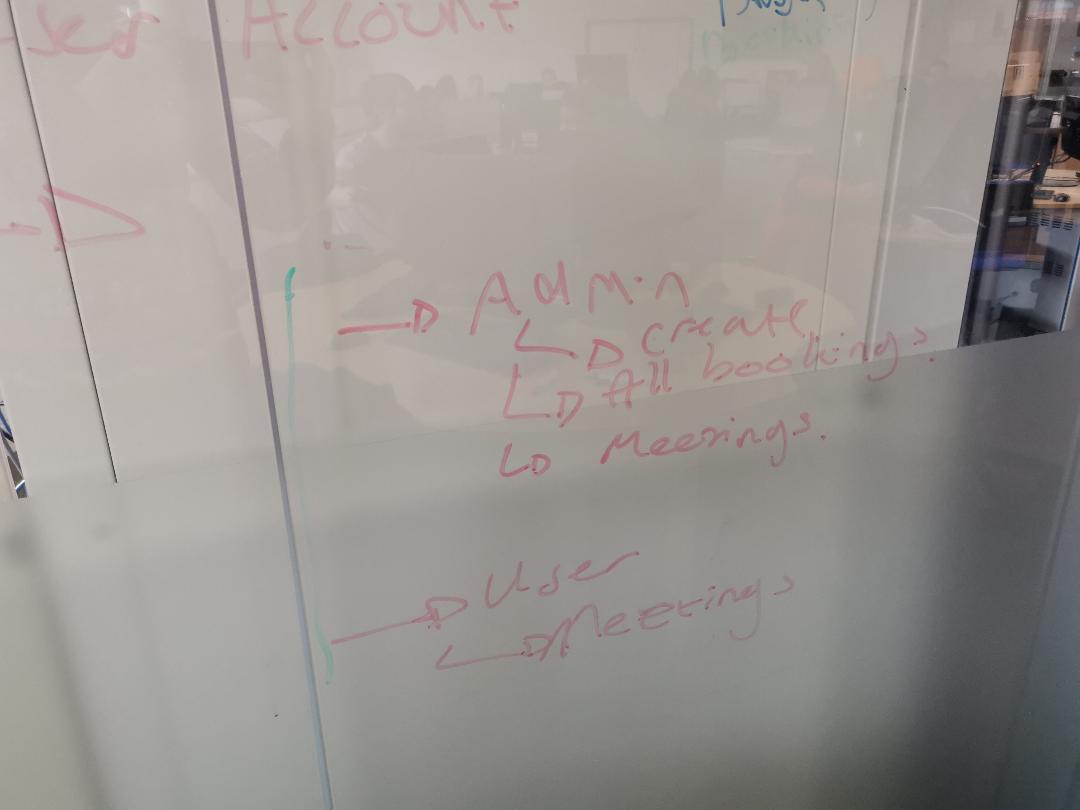 Account
Admin
create
All bookings.
Meetings.
User
Meetings